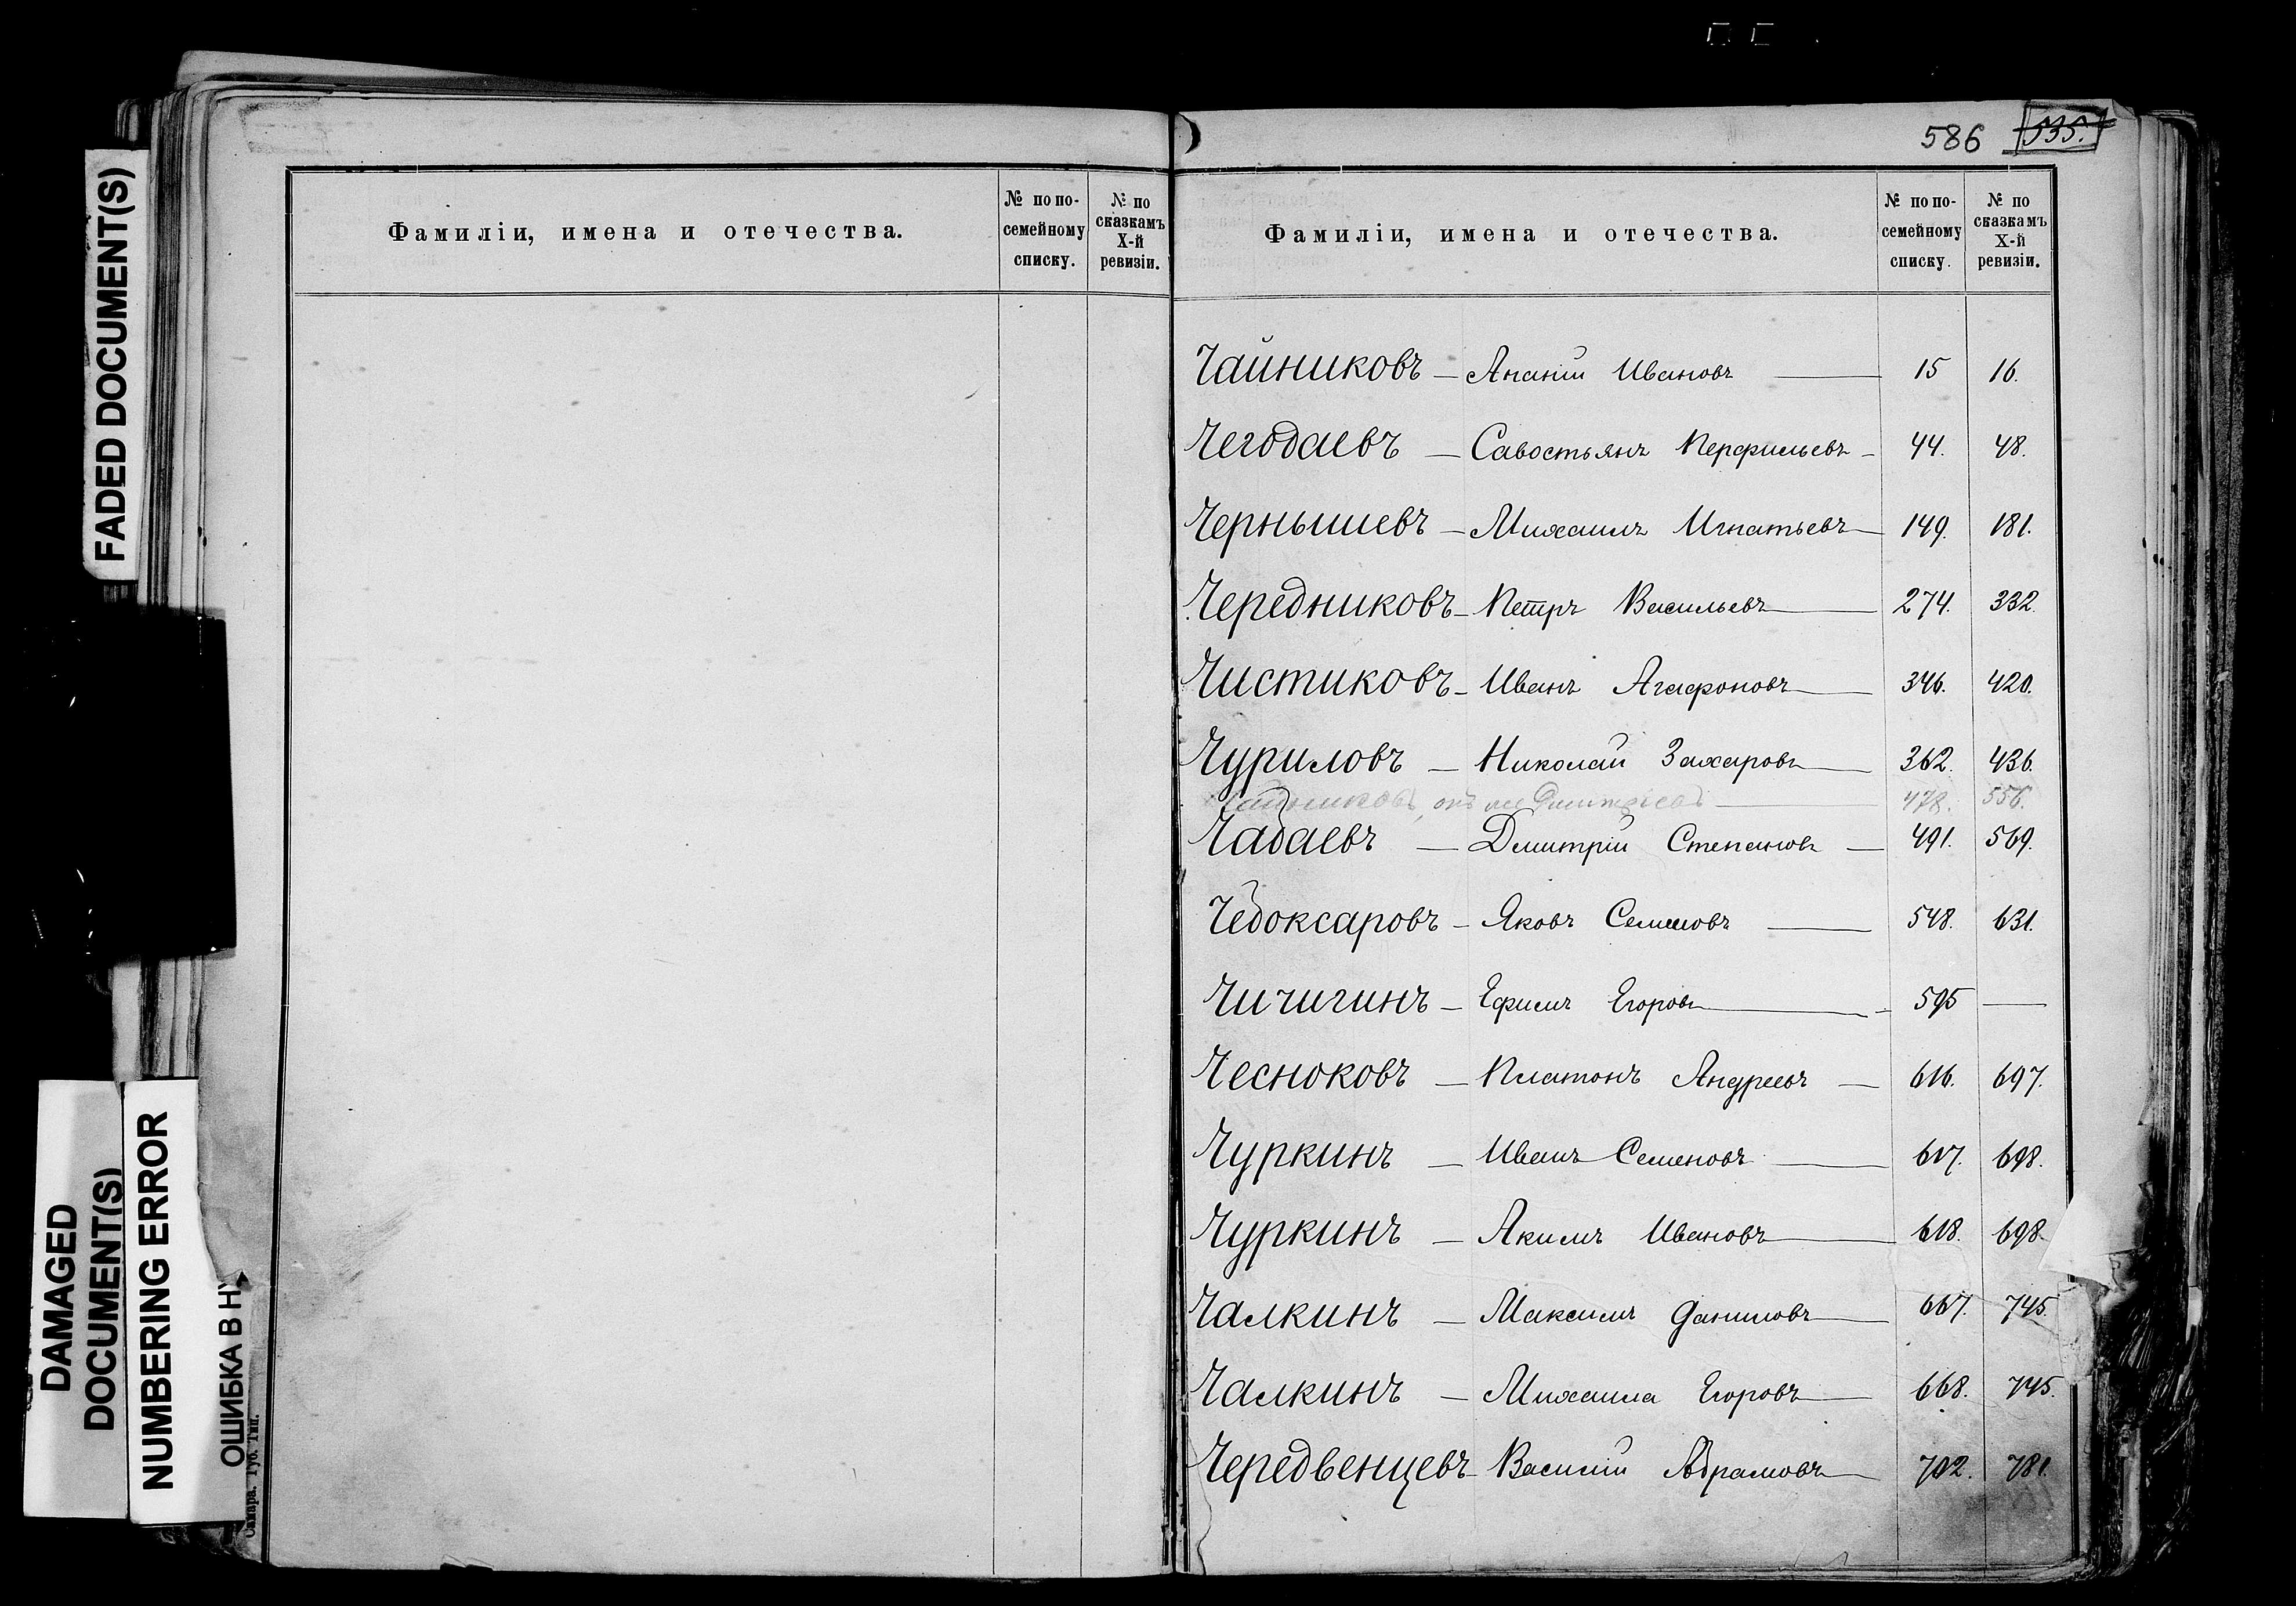 586 535.
FADED DOCUMENT(S)
DAMAGED
DOCUMENT(S)
NUMBERING ERROR
ОШИБКА В Н
Самара. Губ. Тип.
Фамиліи, имена и отечества.
№ по по-
семейному
списку.
№ по
сказкамъ
X-й
ревизіи.
Фамиліи, имена и отечества.
№ по по-
семейному
списку.
№ по
сказкамъ
X-й
ревизіи.
Чайниковъ — Ананій Ивановъ — 15 16.
Чегодаевъ — Савостьянъ Перфильевъ — 44. 48.
Чернышевъ — Михаилъ Игнатьевъ — 149. 181.
Чередниковъ — Петръ Васильевъ — 274. 332.
Чистиковъ — Иванъ Агафоновъ — 346. 420.
Чуриловъ — Николай Захаровъ — 362. 436.
Чайниковъ, — 478. 556.
Чадаевъ — Дмитрій Степановъ — 491. 569.
Чебоксаровъ — Яковъ Семеновъ — 548. 631.
Чичигинъ — Ефимъ Егоровъ — 595 —
Чесноковъ — Платонъ Андреевъ — 616. 697.
Чуркинъ — Иванъ Семеновъ — 617. 698.
Чуркинъ — Акимъ Ивановъ — 618. 698.
Чалкинъ — Максимъ Даниловъ — 667. 745.
Чалкинъ — Михаила Егоровъ — 668. 745.
Чередвенцевъ — Василій Абрамовъ — 702. 781.